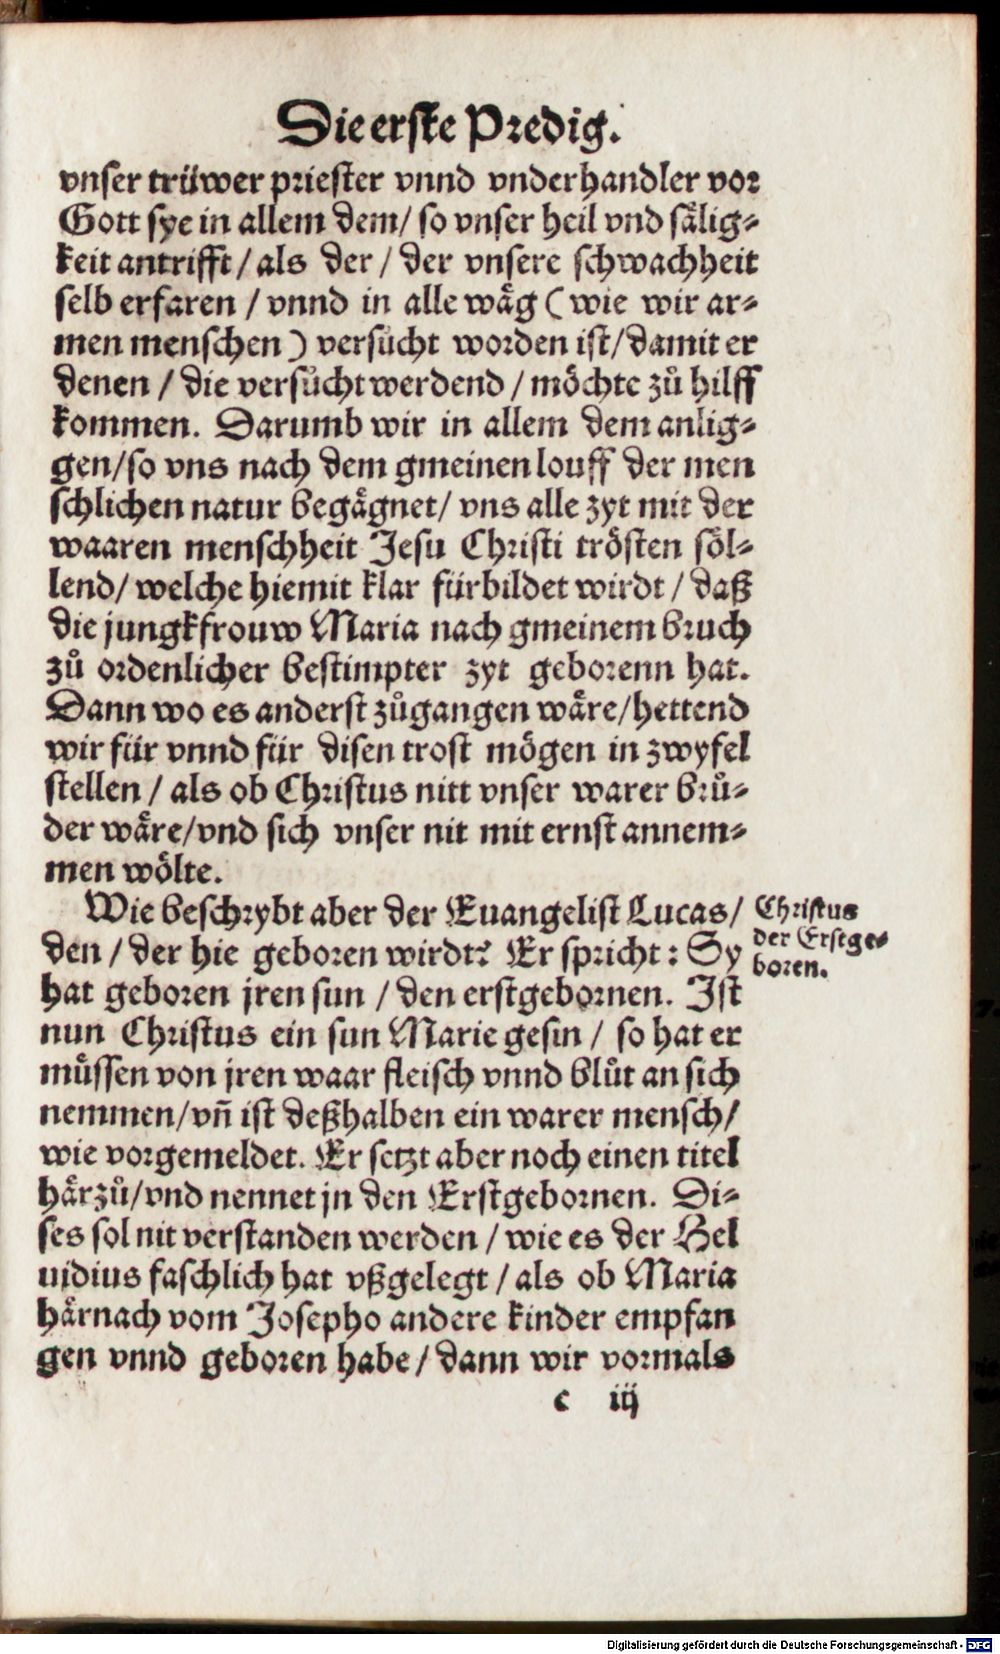 Die erste Predig.
vnser trüwer priester vnnd vnderhandler vor
Gott sye in allem dem/ so vnser heil vnd sälig⸗
keit antrifft/ als der/ der vnsere schwachheit
selb erfaren/ vnnd in alle wäg (wie wir ar⸗
men menschen) versücht worden ist/ damit er
denen/ die versůcht werdend/ möchte zů hilff
kommen. Darumb wir in allem dem anlig⸗
gen/ so vns nach dem gmeinen louff der men
schlichen natur begägnet/ vns alle zyt mit der
waaren menschheit Jesu Christi trösten söl⸗
lend/ welche hiemit klar fürbildet wirdt/ daß
die jungkfrouw Maria nach gmeinem bruch
zů ordenlicher bestimpter zyt geborenn hat.
Dann wo es anderst zůgangen wäre/ hettend
wir für vnnd für disen trost mögen in zwyfel
stellen/ als ob Christus nitt vnser warer brů⸗
der wäre/ vnd sich vnser nit mit ernst annem⸗
men wölte.
Wie beschrybt aber der Euangelist Lucas/
den/ der hie geboren wirdt? Er spricht: Sy
hat geboren jren sun/ den erstgebornen. Ist
nun Christus ein sun Marie gesin/ so hat er
müssen von jren waar fleisch vnnd blůt an sich
nemmen/ vñ ist deßhalben ein warer mensch/
wie vorgemeldet. Er setzt aber noch einen titel
härzů/ vnd nennet jn den Erstgebornen. Di⸗
ses sol nit verstanden werden/ wie es der Hel
uidius faschlich hat vßgelegt/ als ob Maria
härnach vom Josepho andere kinder empfan
gen vnnd geboren habe/ dann wir vormals
c iij
Christus
der Erstge⸗
boren.
Digitalisierung gefördert durch die Deutsche Forschungsgemeinschaft - DFG